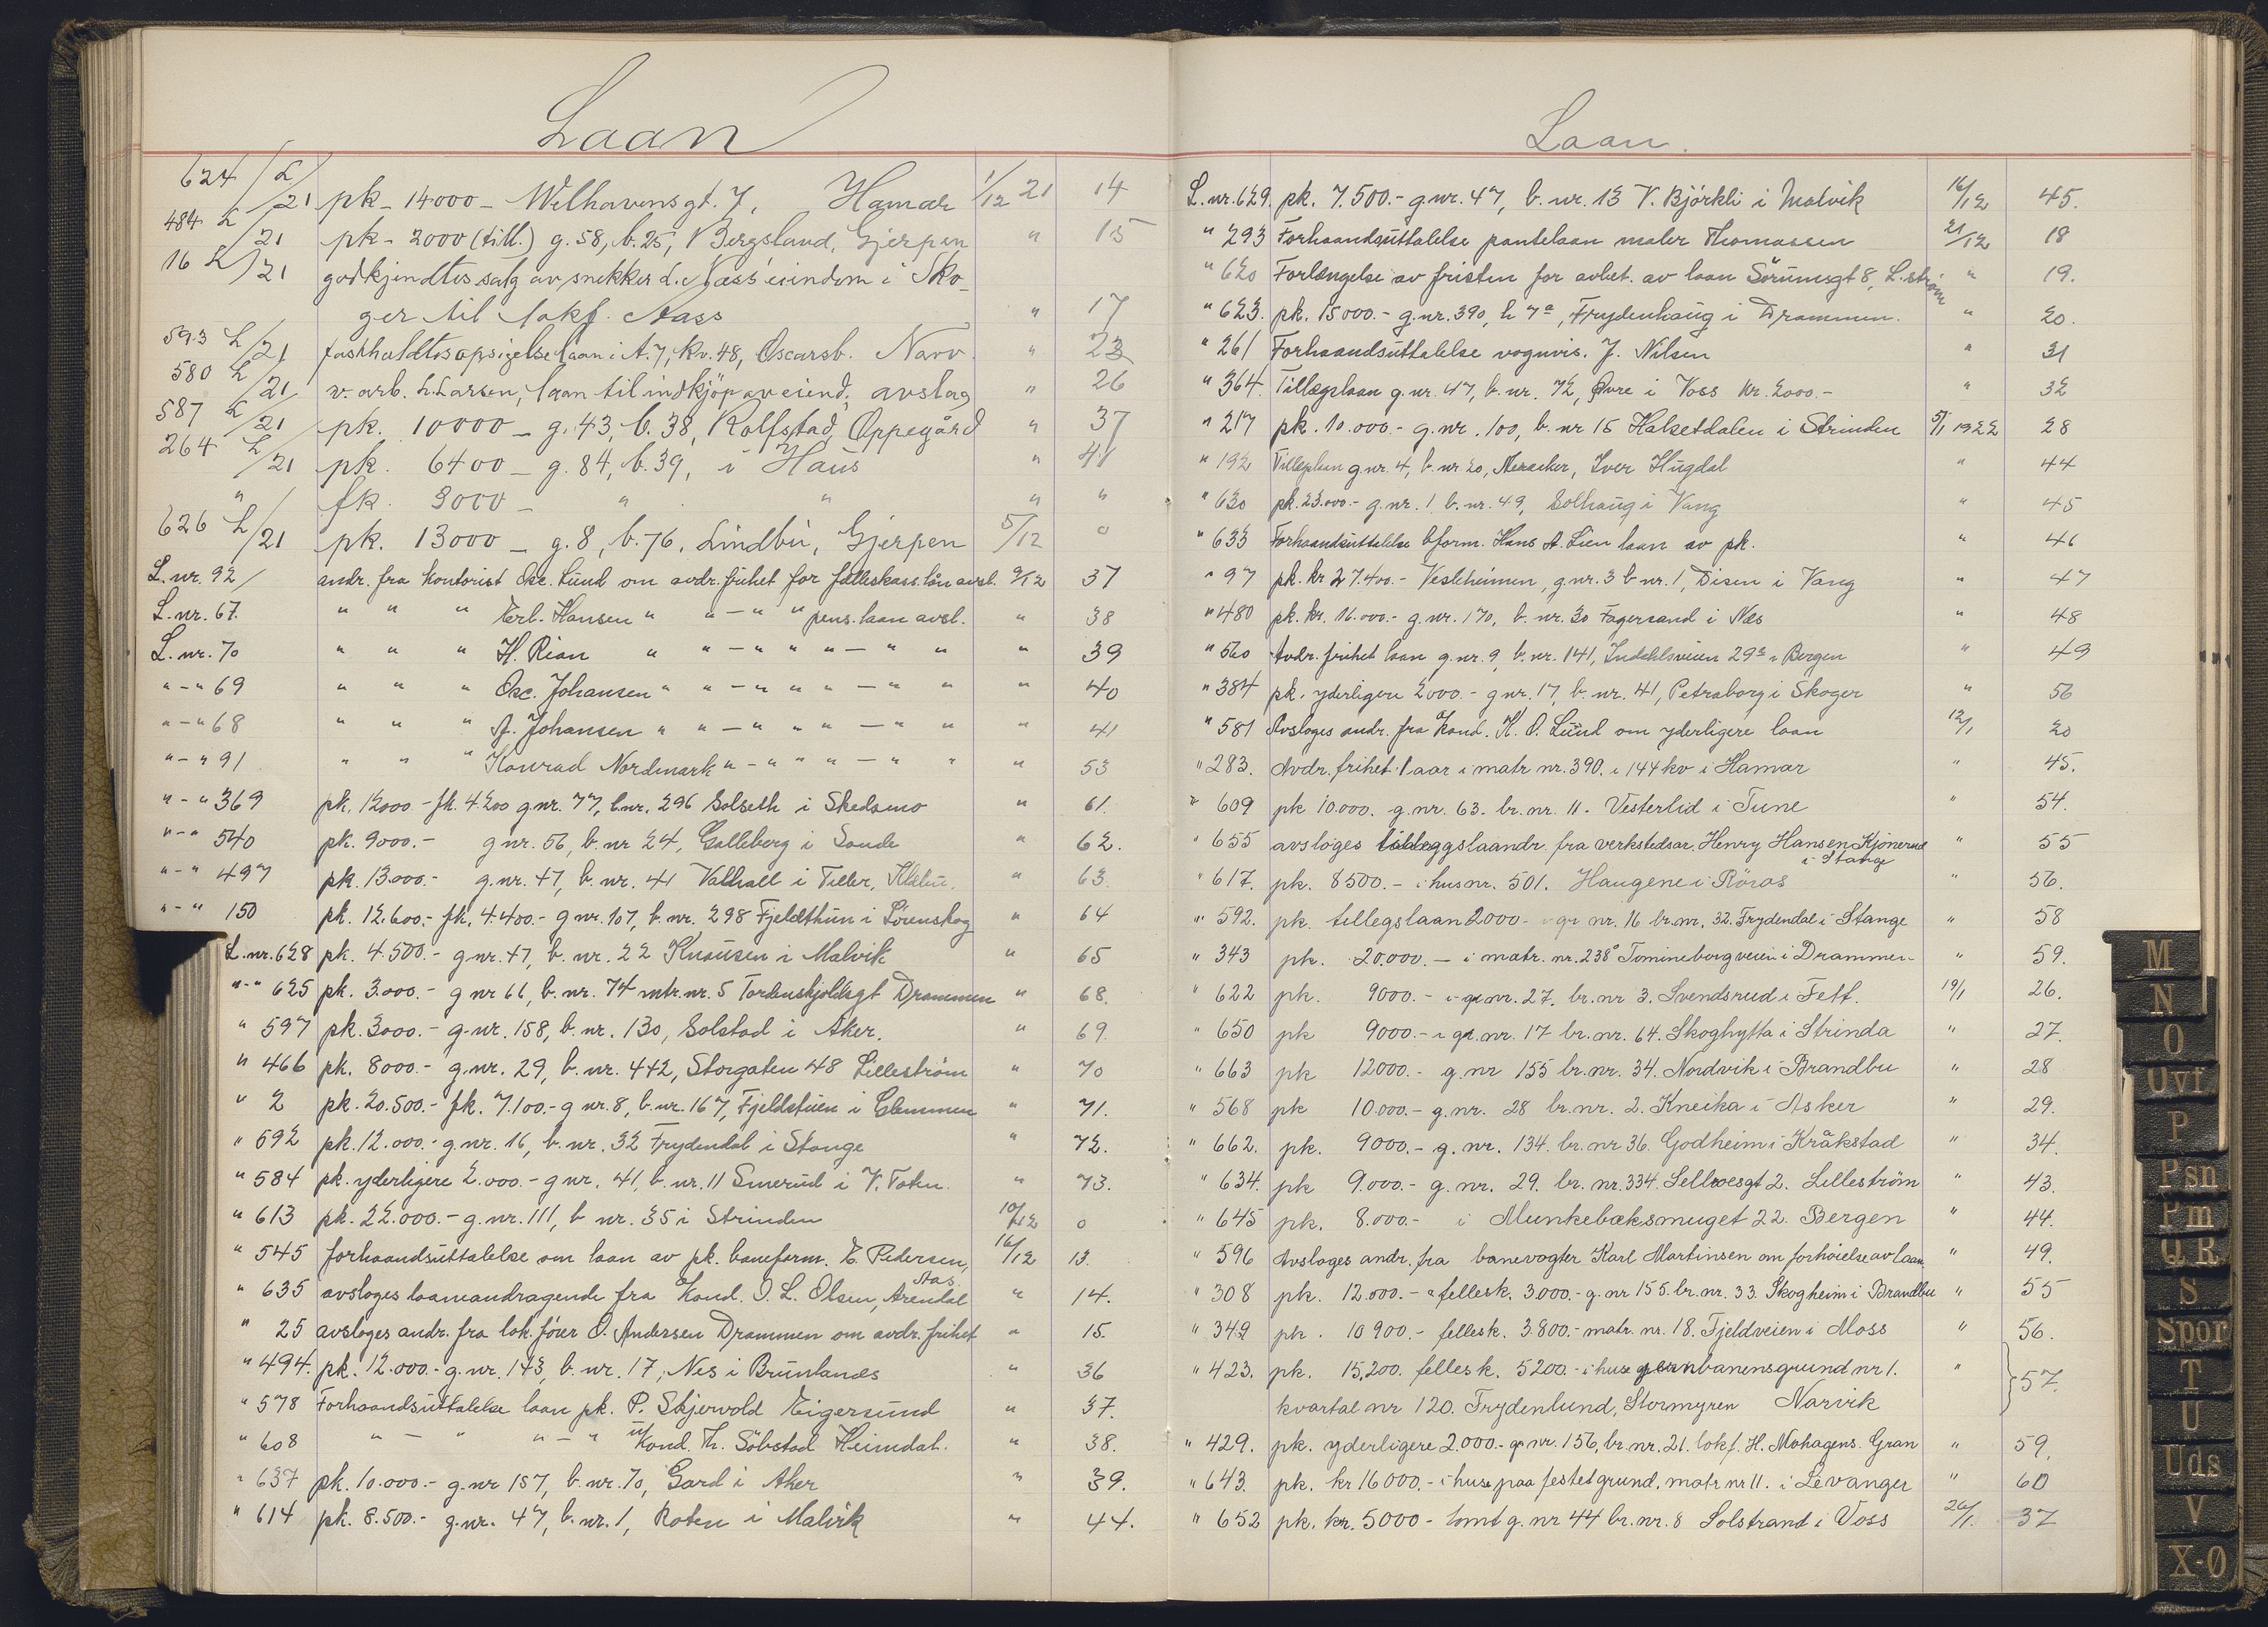 Laan
624 L/21 pk - 14000 - Welhavensgt. 7, Hamar 1/12 21 14
484 L/21 pk - 2000 (till.) g. 58, b. 25, Bergsland, Gjerpen " 15
16 L/21 godkjendtes salg av snekker L. Næss' eiendom i Sko-
ger til lokf. Aass " 17
593 L/21 fastholdtes opsigelse laan i A. 7, kv. 48, Oscarsb. Narv. " 23
580 L/21 v. arb. L. Larsen, laan til indkjöp av eiend., avslag " 26
587 L/21 pk. 10000 - g. 43, b. 38, Rolfstad, Oppegård " 37
264 L/21 pk. 6400 - g. 84, b. 39, i Haus " 41
" fk. 3000 - " " " "
626 L/21 pk. 13000 - g. 8, b. 76, Lindbu, Gjerpen 5/12 0
L. nr. 92/ andr. fra kontorist Osc. Lund om avdr. frihet for felleskass. lån avsl. 9/12 37
L. nr. 67. " " " Erl. Hansen " " - " " pens. laan avsl. " 38
L. nr. 70 " " " H. Rian " " - " " " - " " " 39
" - " 69 " " " Osc. Johansen " " - " " " - " " " 40
" - " 68 " " " A. Johansen " " - " " " - " " " 41
" - " 91 " " " Konrad Nordmark " - " " " - " " " 53
" - " 369 pk. 12000 - fk. 4.200 g nr. 77, b. nr. 296 Solseth i Skedsmo " 61.
" - " 540 pk. 9000.- g nr. 56, b. nr 24, Galleberg i Sande " 62.
" - " 497 pk. 13.000.- g. nr. 47, b. nr. 41 Valhall i Tiller, Klæbu. " 63.
" - " 150 pk. 12.600.- fk. 4.400.- g nr. 107, b. nr. 298 Fjeldthun i Lörenskog " 64
L. nr. 628 pk. 4.500.- g nr. 47, b. nr. 22 Knausen i Malvik " 65
" - " 625 pk. 3.000.- g nr 66, b. nr. 74 mtr. nr. 5 Tordenskjoldsgt Drammen " 68.
" 597 pk. 3000.- g. nr. 158, b. nr. 130, Solstad i Aker. " 69.
" 466 pk. 8000.- g. nr. 29, b. nr. 442, Storgaten 48 Lilleström " 70
" 2 pk. 20.500.- fk. 7.100.- g nr. 8, b. nr. 167, Fjeldstuen i Glemmen " 71.
" 592 pk. 12.000.- g nr. 16, b. nr. 32 Frydendal i Stange " 72.
" 584 pk. yderligere 2.000.- g nr. 41, b. nr. 11 Smerud i V. Toten. " 73.
" 613 pk. 22.000.- g. nr. 111, b nr. 35 i Strinden 10/12 0
" 545 forhaandsuttalelse om laan av pk. baneform. E. Pedersen, Aas. 16/12 13.
" 635 avsloges laaneandragende fra Kond. O. L. Olsen, Arendal " 14.
" 25 avsloges andr. fra lok. förer O. Andersen Drammen om avdr. frihet " 15.
" 494. pk. 12.000.- g. nr. 143, b. nr. 17, Nes i Brunlanes " 36
" 578 Forhaandsuttalelse laan pk. P. Skjervold Eigersund " 37.
" 608 " - " " - " ukond. Th. Söbstad Heimdal. " 38.
" 637 pk. 10.000.- g. nr 157, b. nr. 70, Gard i Aker " 39.
" 614 pk. 8.500.- g. nr. 47, b. nr. 1, Roten i Malvik " 44.
Laan.
L. nr. 629. pk. 7.500.- g nr. 47, b. nr. 13 V. Björkli i Malvik 16/12 45.
" 293 Forhaandsuttalelse pantelaan maler Thomassen 21/12 18
" 620 Forlængelse av fristen for avbet. av laan Sörumsgt 8, L. ström " 19.
" 623. pk. 15000.- g. nr. 390, b 7a, Frydenhaug i Drammen. " 20.
" 261 Forhaandsuttalelse vognvis. J. Nilsen " 31
" 364. Tillægslaan g. nr. 47, b. nr. 72, Øvre i Voss kr. 2000.- " 32
" 217 pk. 10.000.- g. nr. 100, b. nr 15 Halsetdalen i Strinden 5/1 1922 28
" 192 Tillægslaan g nr. 4, b. nr 20, Meraker, Iver Hugdal " 44
" 630 pk. 23.000.- g nr. 1 b. nr. 49, Solhaug i Vang " 45
" 633 Forhaandsuttalelse bform. Hans A. Lien laan av pk. " 46
" 97 pk. kr 27.400.- Vesleheimen, g nr. 3 b nr. 1, Disen i Vang " 47
" 480 pk. kr. 16.000.- g. nr. 170, b. nr. 30 Fagersand i Nes " 48
" 560 Avdr. frihet laan g. nr. 9, b. nr. 141, Indahlsveien 29 i Bergen " 49
" 384 pk. yderligere 2000.- g nr. 17, b. nr. 41, Petraborg i Skoger " 56
" 581 Avsloges andr. fra Kond. K. O. Lund om yderligere laan 12/1 20
" 283. Avdr. frihet 1 aar i matr nr. 390. i 144 kv i Hamar " 45.
" 609 pk 10.000. g. nr. 63. br. nr. 11. Vesterlid i Tune " 54.
" 655 avsloges tilleggslaandr. fra verkstedsar. Henry Hansen Kjönerud " 55
i Stange
" 617. pk. 8500.- i hus nr. 501. Haugene i Röros " 56.
" 592. pk. tillegslaan 2000.- i gr nr. 16 br. nr. 32. Frydendal i Stange " 58
" 343 pk. 20.000.- i matr. nr. 238 Tomineborgveien i Drammen " 59.
" 622 pk. 9000.- i gr. nr. 27. br. nr 3. Svendsrud i Fett. 19/1 26.
" 650 pk 9000.- i gr. nr. 17 br. nr. 64. Skoghytta i Strinda " 27.
" 663 pk 12000.- g. nr 155 br. nr. 34. Nordvik i Brandbu " 28
" 568 pk 10.000.- g. nr. 28 br. nr. 2. Kneika i Asker " 29.
" 662. pk. 9000.- g. nr. 134. br. nr 36. Godheim i Kråkstad " 34.
" 634. pk 9.000.- g. nr. 29. br. nr. 334. 2. Lilleström " 43.
" 645 pk. 8.000.- i Munkebæksmuget 22. Bergen " 44.
" 596 Avsloges andr. fra banevogter Karl Martinsen om forhöielse av laan " 49.
" 308 pk. 12.000.- fellesk. 3.000.- g. nr 155. br. nr. 33. Skogheim i Brandbu " 55
" 349 pk. 10 900.- fellesk. 3.800.- matr. nr. 18. Fjeldveien i Moss " 56.
" 423. pk. 15,200. fellesk. 5200.- i huse jernbanensgrund nr 1. " 57.
kvartal nr 120. Frydenlund, Stormyren Narvik
" 429. pk. yderligere 2.000.- gr nr. 156, br. nr. 21. lokf. H. Mohagens. Gran " 59.
" 643. pk. kr 16000.- i huse paa festet grund, matr nr 11. i Levanger " 60
" 652 pk. kr. 5000- tomt g. nr 44 br. nr. 8 Solstrand i Voss 26/1. 37
M
N
O
Ovf
P
Psn
Pm
Q R
S
Spor
T
U
Uds
V
X-Ø